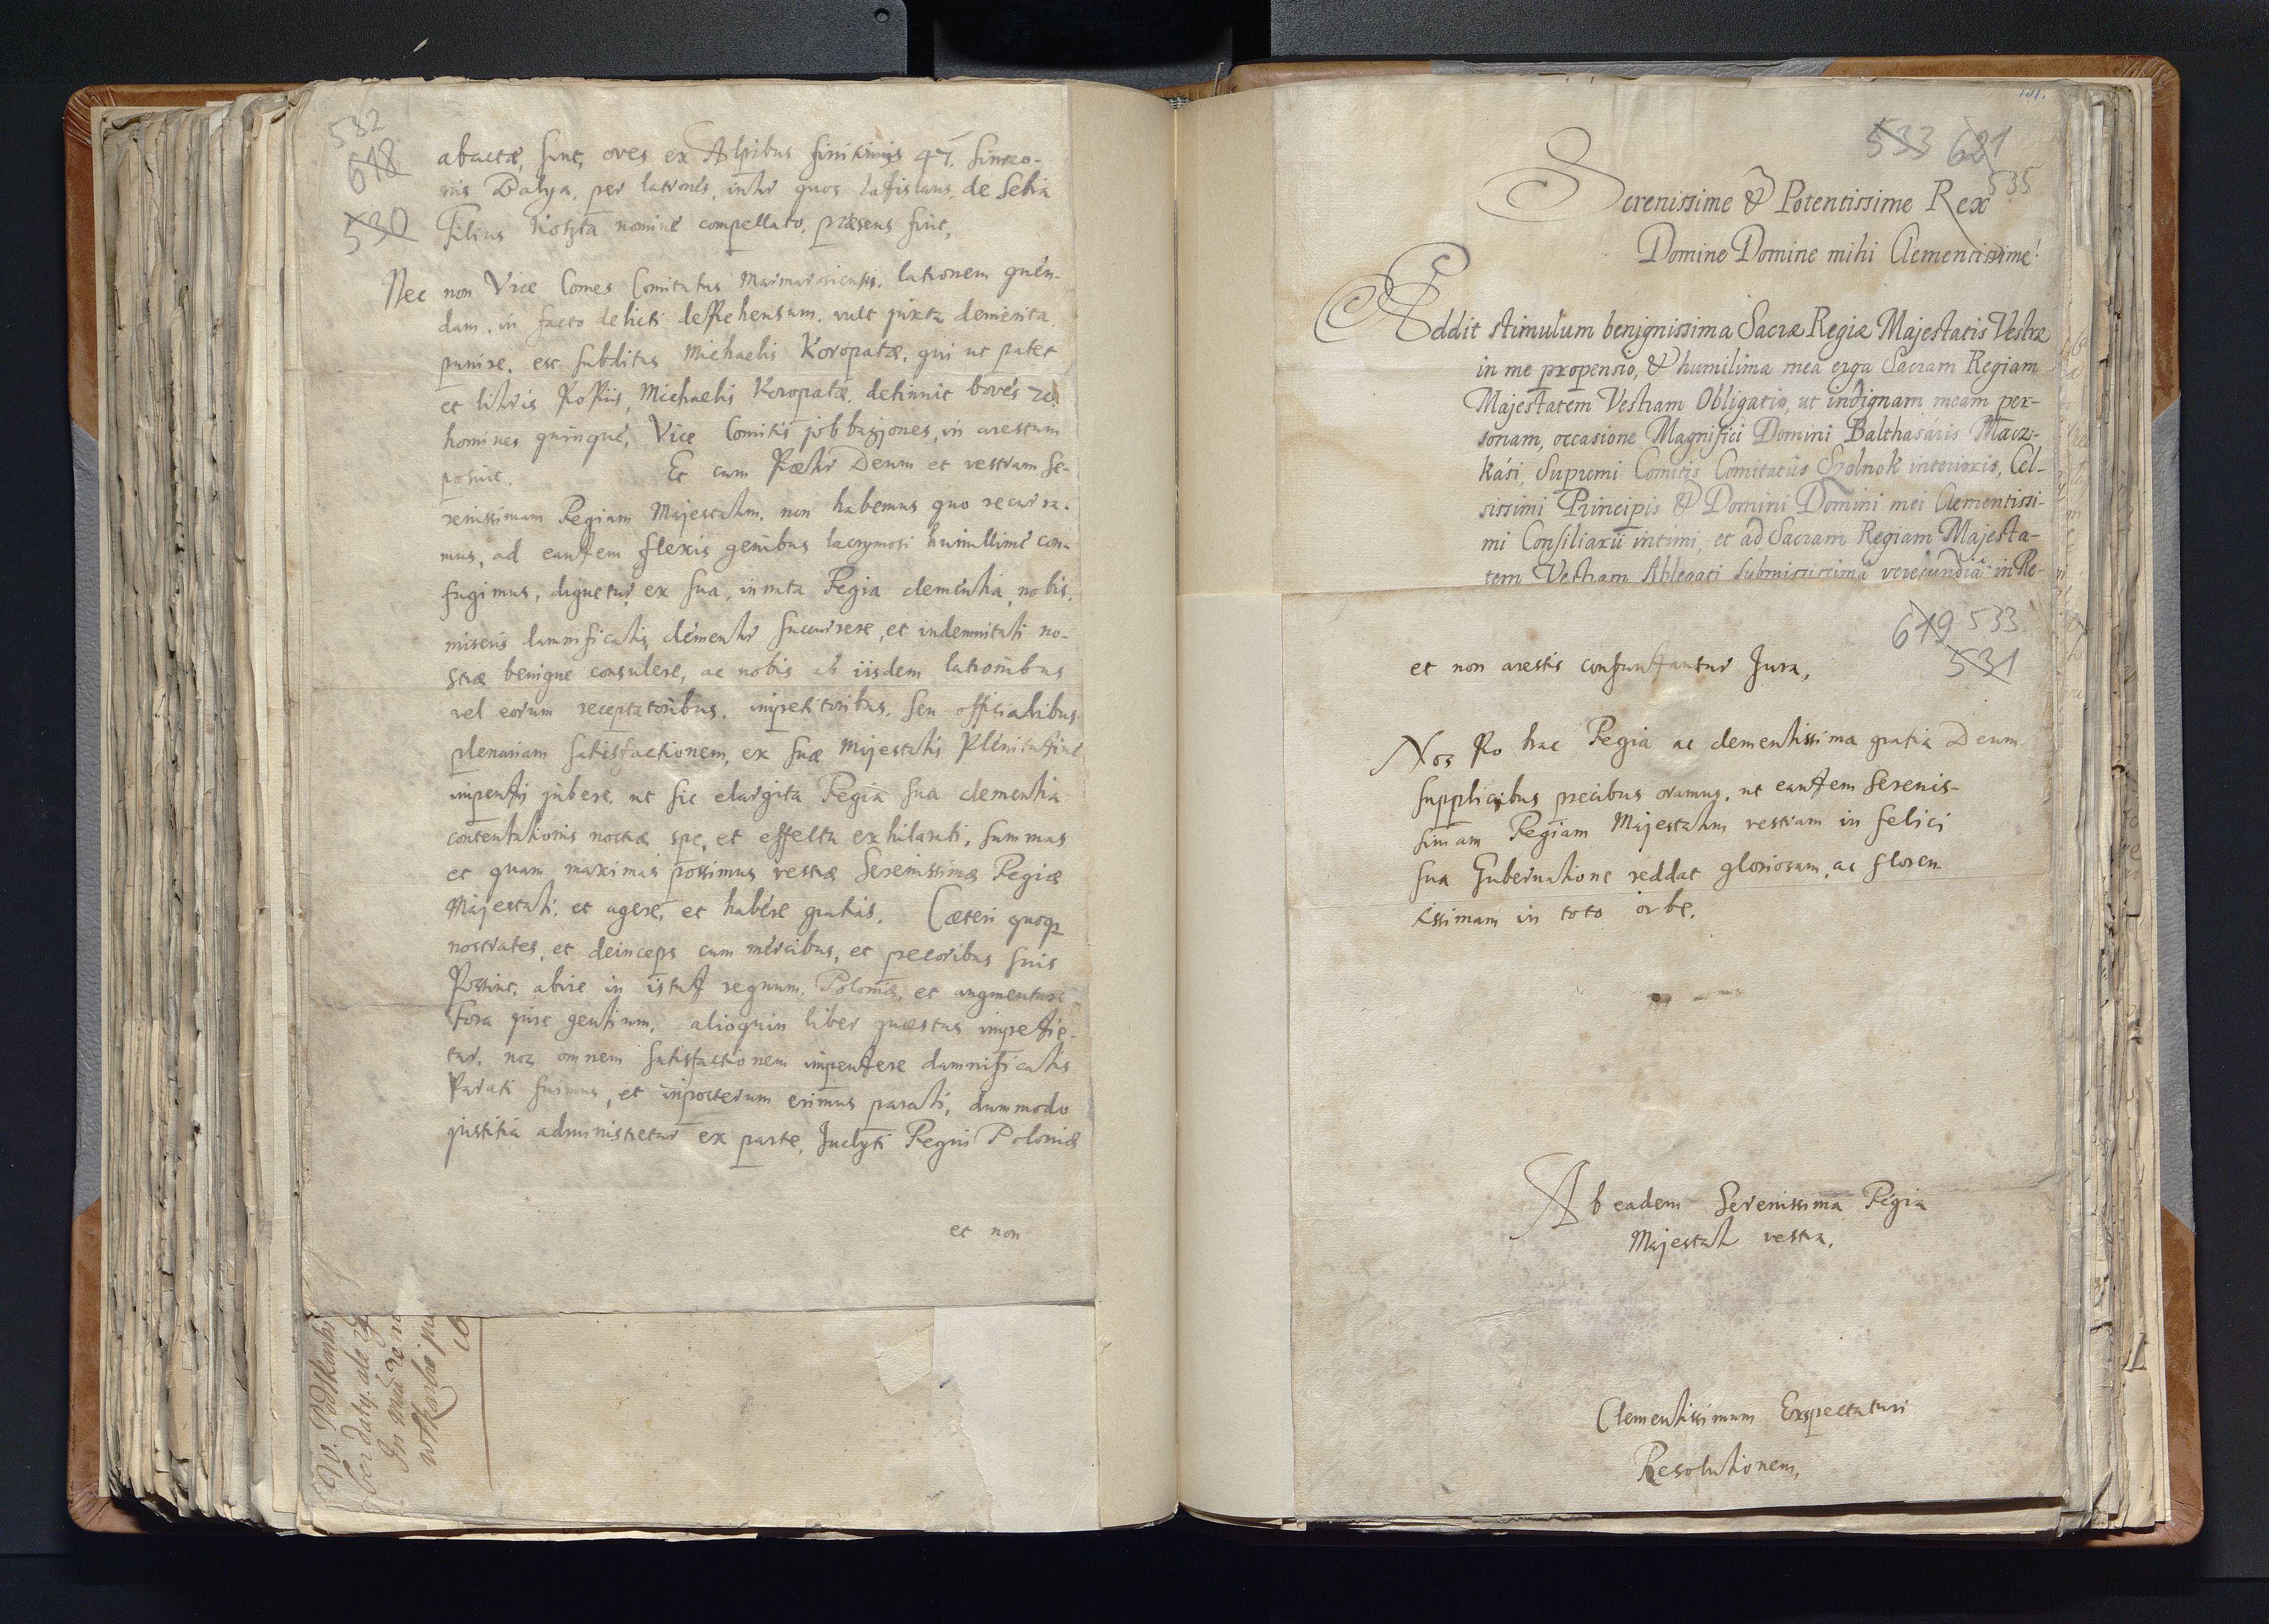 532
618
530
abactæ, sunt, oves ex Alpibus finitimis 47. Simeo-
nis Dalya, per latrones, inter quos Ladislaus, de Selia
Filius Kotzta nomine compellato, præsens fuit,
Nec non Vice Comes Comitatus Marmarosiensis. latronem quen-
dam, in facto delicti deprehensum. vult juxta demerita
punire, est subditus Michaelis Koropatæ, qui ut patet
et litteris propriis, Michaelis Koropatæ, detinuit boves 20
homines quinque, Vice Comitis jobbagjones, in arestum
posuit. Et cum Præter Deum et vestram Se-
renissimam Regiam Majestatem, non habemus quo recurra-
mus, ad eandem flexis genibus lacrymosi humillime con-
fugimus, dignetur ex sua, innata Regia clementia, nobis,
miseris damnificatis, clementer succurrere, et indemnitati no-
stræ benigne consulere, ac nobis ab iisdem latronibus
vel eorum receptatoribus, impetitoribus, seu officialibus
plenariam satisfactionem, ex suæ Majestatis Plenitudine
impendi jubere, ut sic elargita Regia sua clementia
contentationis nostræ spe, et effectu exhilarati, summas
et quam maximas possimus vestræ Serenissimæ Regiæ
Majestati, et agere, et habere gratias. Cæteri quoq
nostrates, et deinceps cum mercibus, et pecoribus suis
Possint, abire in istud regnum, Poloniæ, et augmentare
Fora jure gentium, alioquin liber quæstus impedie-
tur, nos omnem satisfactionem impendere damnificatis
Parati fuimus, et imposterum erimus parati, dummodo
justitia administretur ex parte, Inclyti Regni Poloniæ
et non
533 621
535
Serenissime & Potentissime Rex
Domine Domine mihi Clementissime!
Addit stimulum benignissima Sacræ Regiæ Majestatis Vestræ
in me propensio, & humilima mea erga Sacram Regiam
Majestatem Vestram Obligatio, ut indignam meam per-
sonam, occasione Magnifici Domini Balthasáris Macz-
kási, Supremi Comitis Comitatûs Szolnok interioris, Cel-
sissimi Principis & Domini Domini mei Clementissi-
mi Consiliarii intimi, et ad Sacram Regiam Majesta-
tem Vestram Ablegati submississimâ verecundiâ in Re-
619 533
531
et non arestis confundantur Jura,
Nos Pro hac Regia ac clementissima gratia Deum
supplicibus precibus oramus, ut eandem Serenis-
simam Regiam Majestatem vestram in felici
sua Gubernatione reddat gloriosam, ac floren
tissimam in toto orbe.
Ab eadem Serenissima Regia
Majestate vestra,
Clementissimam Exspectaturi
Resolutionem,